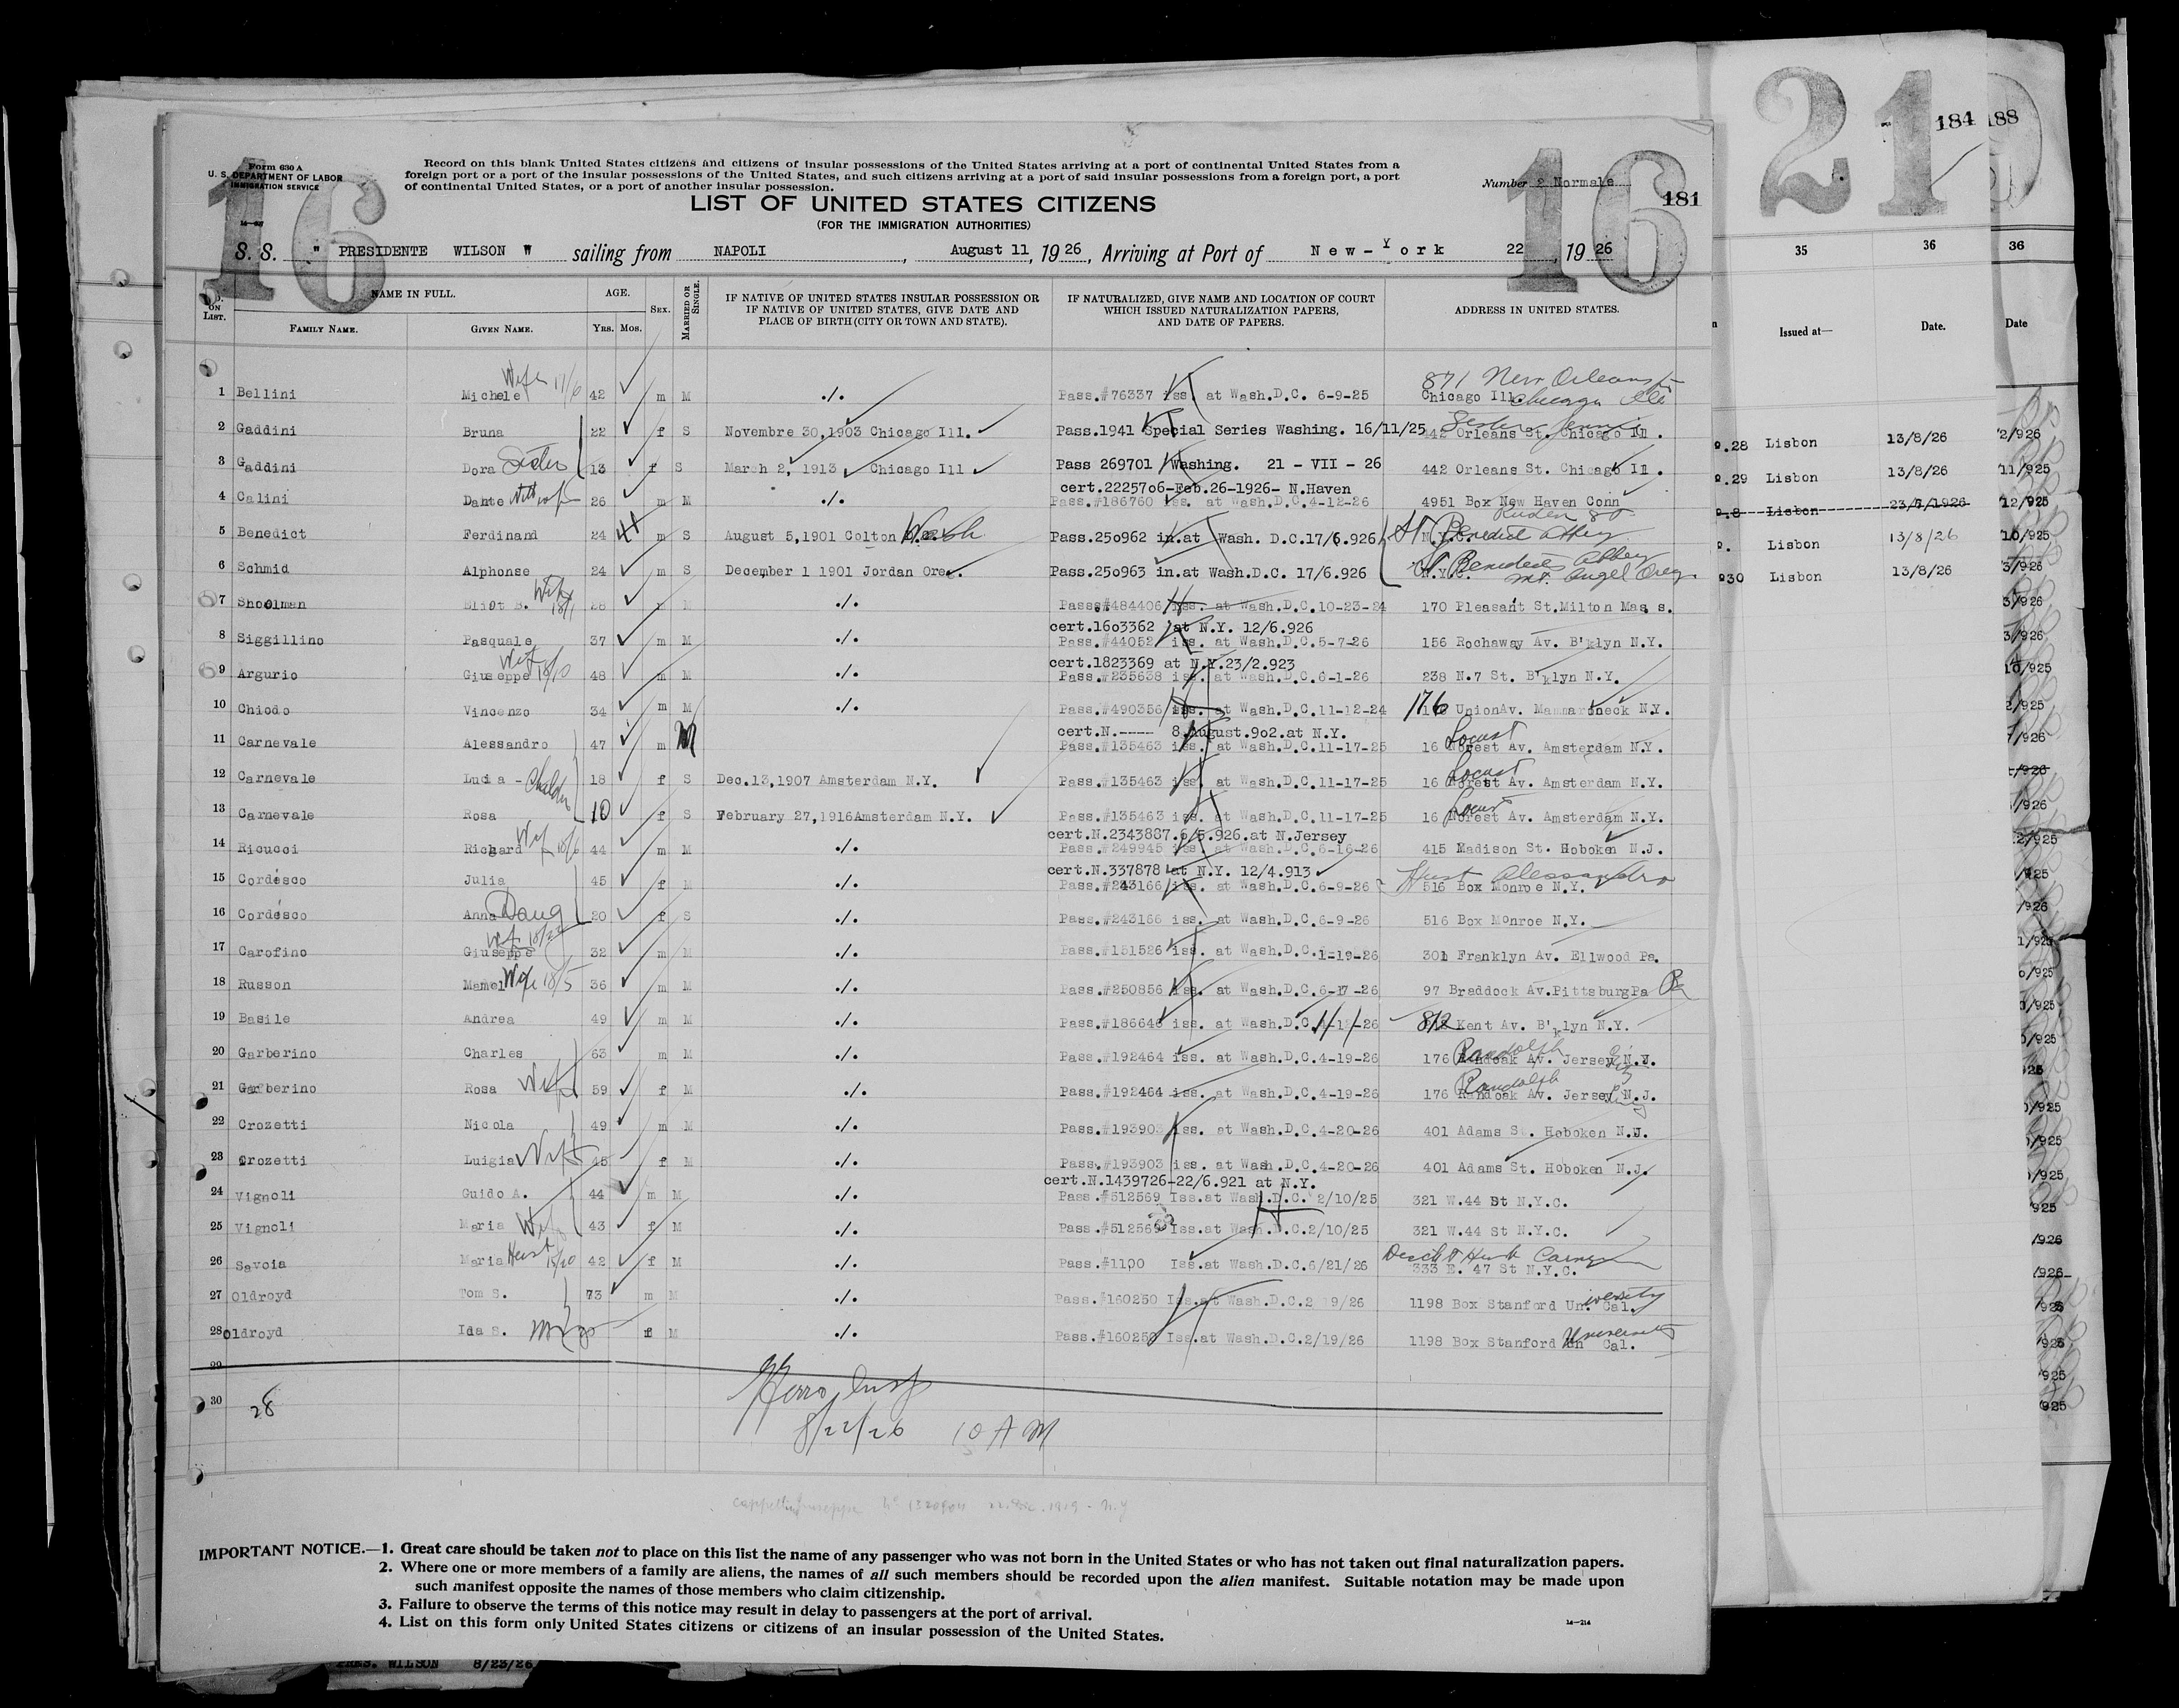 Form 630 A
U. S. DEPARTMENT OF LABOR
IMMIGRATION SERVICE
16
Record on this blank United States citizens and citizens of insular possessions of the United States arriving at a port of continental United States from a
foreign port or a port of the insular possessions of the United States, and such citizens arriving at a port of said insular possessions from a foreign port, a port
of continental United States, or a port of another insular possession.
Number 2 Normale
16
181
LIST OF UNITED STATES CITIZENS
(FOR THE IMMIGRATION AUTHORITIES)
S. S. " PRESIDENTE WILSON " sailing from NAPOLI, August 11, 1926, Arriving at Port of New-York 22, 1926
No. ON LIST. NAME IN FULL. FAMILY NAME. GIVEN NAME. AGE. Yrs. Mos. SEX. MARRIED OR SINGLE. IF NATIVE OF UNITED STATES INSULAR POSSESSION OR IF NATIVE OF UNITED STATES, GIVE DATE AND PLACE OF BIRTH (CITY OR TOWN AND STATE). IF NATURALIZED, GIVE NAME AND LOCATION OF COURT WHICH ISSUED NATURALIZATION PAPERS, AND DATE OF PAPERS. ADDRESS IN UNITED STATES.
871 New Orleans
1 Bellini Michele Wife 17/6 42 m M ./. Pass.#76337 iss. at Wash.D.C. 6-9-25 Chicago Ill. Chicago Ill
2 Gaddini Bruna 22 f S Novembre 30,1903 Chicago Ill. Pass.1941 Special Series Washing. 16/11/25 442 Orleans St. Chicago Ill.
3 Gaddini Dora Sister 13 f S March 2, 1913 Chicago Ill Pass 269701 Washing. 21 - VII - 26 442 Orleans St. Chicago Ill.
cert.2225706-Feb.26-1926- N.Haven
4 Calini Dante 26 m M ./. Pass.#186760 iss. at Wash.D.C.4-12-26 4951 Box New Haven Conn
5 Benedict Ferdinand 24 m S August 5,1901 Colton Wash Pass.250962 in.at Wash. D.C.17/6.926 N.Y.C. St Benedict Abbey
6 Schmid Alphonse 24 m S December 1 1901 Jordan Oreg. Pass.250963 in.at Wash.D.C. 17/6.926 N.Y.C. St Benedicts Abbey Mt. Angel Oreg
7 Shoolman Eliot B. Wife 28 m M ./. Pass.#484406 iss. at Wash.D.C.10-23-24 170 Pleasant St.Milton Mass.
cert.1603362 at N.Y. 12/6.926
8 Siggillino Pasquale 37 m M ./. Pass.#44052 iss. at Wash.D.C.5-7-26 156 Rochaway Av. B'klyn N.Y.
cert.1823369 at N.Y.23/2.923
9 Argurio Giuseppe Wife 18/10 48 m M ./. Pass.#235638 iss. at Wash.D.C.6-1-26 238 N.7 St. B'klyn N.Y.
10 Chiodo Vincenzo 34 m M ./. Pass.#490356 iss. at Wash.D.C.11-12-24 176 UnionAv. Mammaroneck N.Y.
cert.N.---- 8.August.902.at N.Y.
11 Carnevale Alessandro 47 m M Pass.#135463 iss. at Wash.D.C.11-17-25 16 Locust Forest Av. Amsterdam N.Y.
12 Carnevale Lucia - Children 18 f S Dec.13,1907 Amsterdam N.Y. Pass.#135463 iss. at Wash.D.C.11-17-25 16 Locust Forest Av. Amsterdam N.Y.
13 Carnevale Rosa 10 f S February 27,1916Amsterdam N.Y. Pass.#135463 iss. at Wash.D.C.11-17-25 16 Locust Forest Av. Amsterdam N.Y.
cert.N.2343887.6/5.926.at N.Jersey
14 Ricucci Richard Wife 18/6 44 m M ./. Pass.#249945 iss. at Wash.D.C.6-16-26 415 Madison St. Hoboken N.J.
cert.N.337878 at N.Y. 12/4.913
15 Cordesco Julia 45 f M ./. Pass.#243166 iss. at Wash.D.C.6-9-26 Hust Alessandro 516 Box Monroe N.Y.
16 Cordesco Anna Daug 20 f S ./. Pass.#243166 iss. at Wash.D.C.6-9-26 516 Box Monroe N.Y.
17 Carofino Giuseppe Wife 18/22 32 m M ./. Pass.#151526 iss. at Wash.D.C.1-19-26 301 Franklyn Av. Ellwood Pa.
18 Russon Mamel Wife 18/5 36 m M ./. Pass.#250856 iss. at Wash.D.C.6-17-26 97 Braddock Av.PittsburgPa Pa
19 Basile Andrea 49 m M ./. Pass.#186646 iss. at Wash.D.C. 812 Kent Av. B'klyn N.Y.
20 Garberino Charles 63 m M ./. Pass.#192464 iss. at Wash.D.C.4-19-26 176 Randolph Av. Jersey City N.J.
21 Garberino Rosa Wife 59 f M ./. Pass.#192464 iss. at Wash.D.C.4-19-26 176 Randolph Randoak Av. Jersey City N.J.
22 Crozetti Nicola 49 m M ./. Pass.#193903 iss. at Wash.D.C.4-20-26 401 Adams St. Hoboken N.J.
23 Crozetti Luigia Wife 45 f M ./. Pass.#193903 iss. at Wash.D.C.4-20-26 401 Adams St. Hoboken N.J.
cert.N.1439726-22/6.921 at N.Y.
24 Vignoli Guido A. 44 m M ./. Pass.#512569 Iss.at Wash.D.C. 2/10/25 321 W.44 St N.Y.C.
25 Vignoli Maria Wife 43 f M ./. Pass.#512569 Iss.at Wash.D.C.2/10/25 321 W.44 St N.Y.C.
26 Savoia Maria Hust 18/20 42 f M ./. Pass.#1100 Iss.at Wash.D.C.6/21/26 333 E. 47 St N.Y.C.
27 Oldroyd Tom S. 73 m M ./. Pass.#160250 Iss.at Wash.D.C.2 19/26 1198 Box Stanford University Cal.
28 Oldroyd Ida S. f M ./. Pass.#160250 Iss.at Wash.D.C.2/19/26 1198 Box Stanford University Cal.
29
30
28
8/22/26 10 A M
IMPORTANT NOTICE.—1. Great care should be taken not to place on this list the name of any passenger who was not born in the United States or who has not taken out final naturalization papers.
2. Where one or more members of a family are aliens, the names of all such members should be recorded upon the alien manifest. Suitable notation may be made upon
such manifest opposite the names of those members who claim citizenship.
3. Failure to observe the terms of this notice may result in delay to passengers at the port of arrival.
4. List on this form only United States citizens or citizens of an insular possession of the United States.
14—214
PRES. WILSON 8/23/26
21
184
188
35 36 36
Issued at— Date. Date
28 Lisbon 13/8/26 2/926
29 Lisbon 13/8/26 11/925
8 Lisbon 23/7/1926 12/925
Lisbon 13/8/26 10/925
30 Lisbon 13/8/26 3/926
3/926
3/926
10/925
2/925